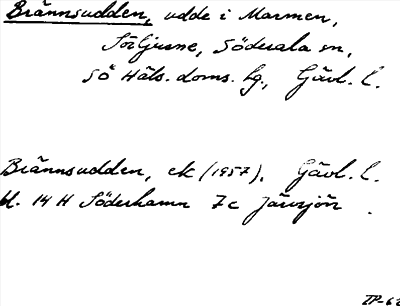 Brännsudden, udde i Marmen,
Sörljusne, Söderala sn,
Sö Häls. doms. hg., Gävl. l.
Brännsudden, ek (1957), Gävl. l.
bl. 14 H Söderhamn 7c Järvsjön.